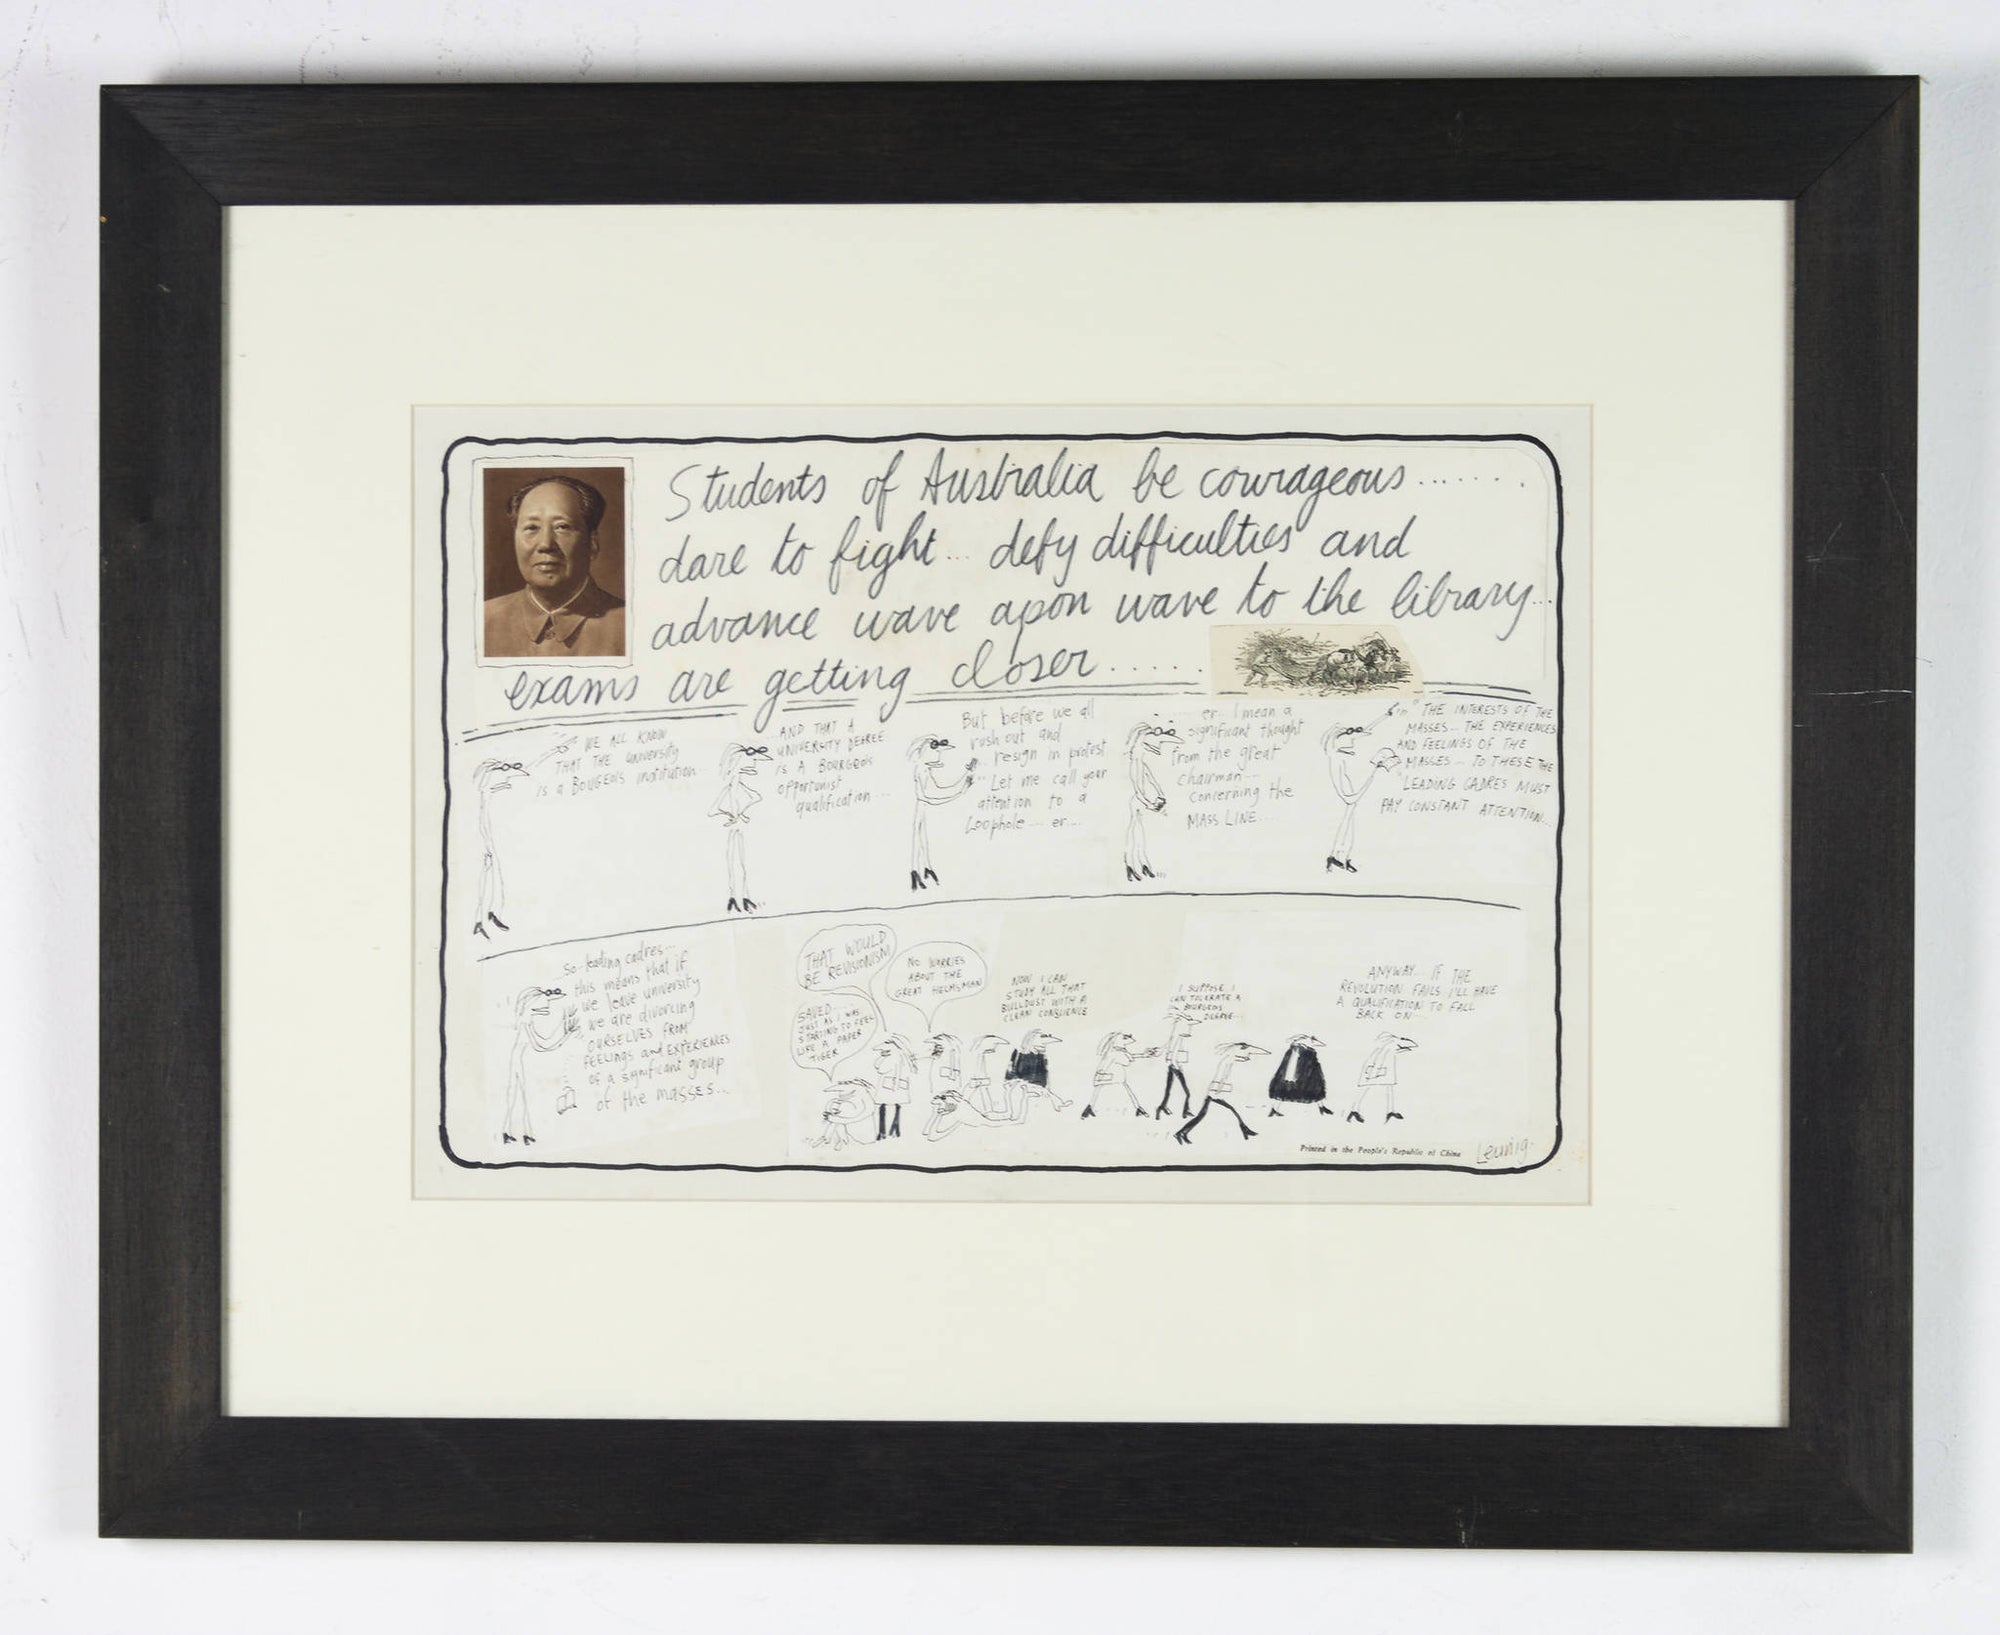 Students of Australia be courageous.......
dare to fight... defy difficulties and
advance wave apon wave to the library...
exams are getting closer......
WE ALL KNOW
THAT THE University
is a BOUGEOIS institution...
...AND THAT A
UNIVERSITY DEGREE
IS A BOURGEOIS
opportunist
qualification...
But before we all
rush out and
... resign in protest
... Let me call your
attention to a
Loophole... er....
...... er.. I mean a
significant thought
from the great
chairman....
concerning the
MASS LINE.....
"THE INTERESTS OF THE
MASSES... THE EXPERIENCES
AND FEELINGS OF THE
MASSES... TO THESE THE
LEADING CADRES MUST
PAY CONSTANT ATTENTION...
...So-leading cadres...
this means that if
we leave university
we are divorcing
OURSELVES FROM
FEELINGS and EXPERIENCES
of a significant group
of the masses...
THAT WOULD
BE REVISIONISM
SAVED...
JUST AS I WAS
STARTING TO FEEL
LIKE A PAPER
TIGER
NO WORRIES
ABOUT THE
GREAT HELMSMAN
NOW I CAN
STUDY ALL THAT
BULLDUST WITH A
CLEAN CONSCIENCE
I SUPPOSE I
CAN TOLERATE A
BOURGEOIS
DEGREE...
ANYWAY... IF THE
REVOLUTION FAILS I'LL HAVE
A QUALIFICATION TO FALL
BACK ON...
Printed in the People's Republic of China
Leunig